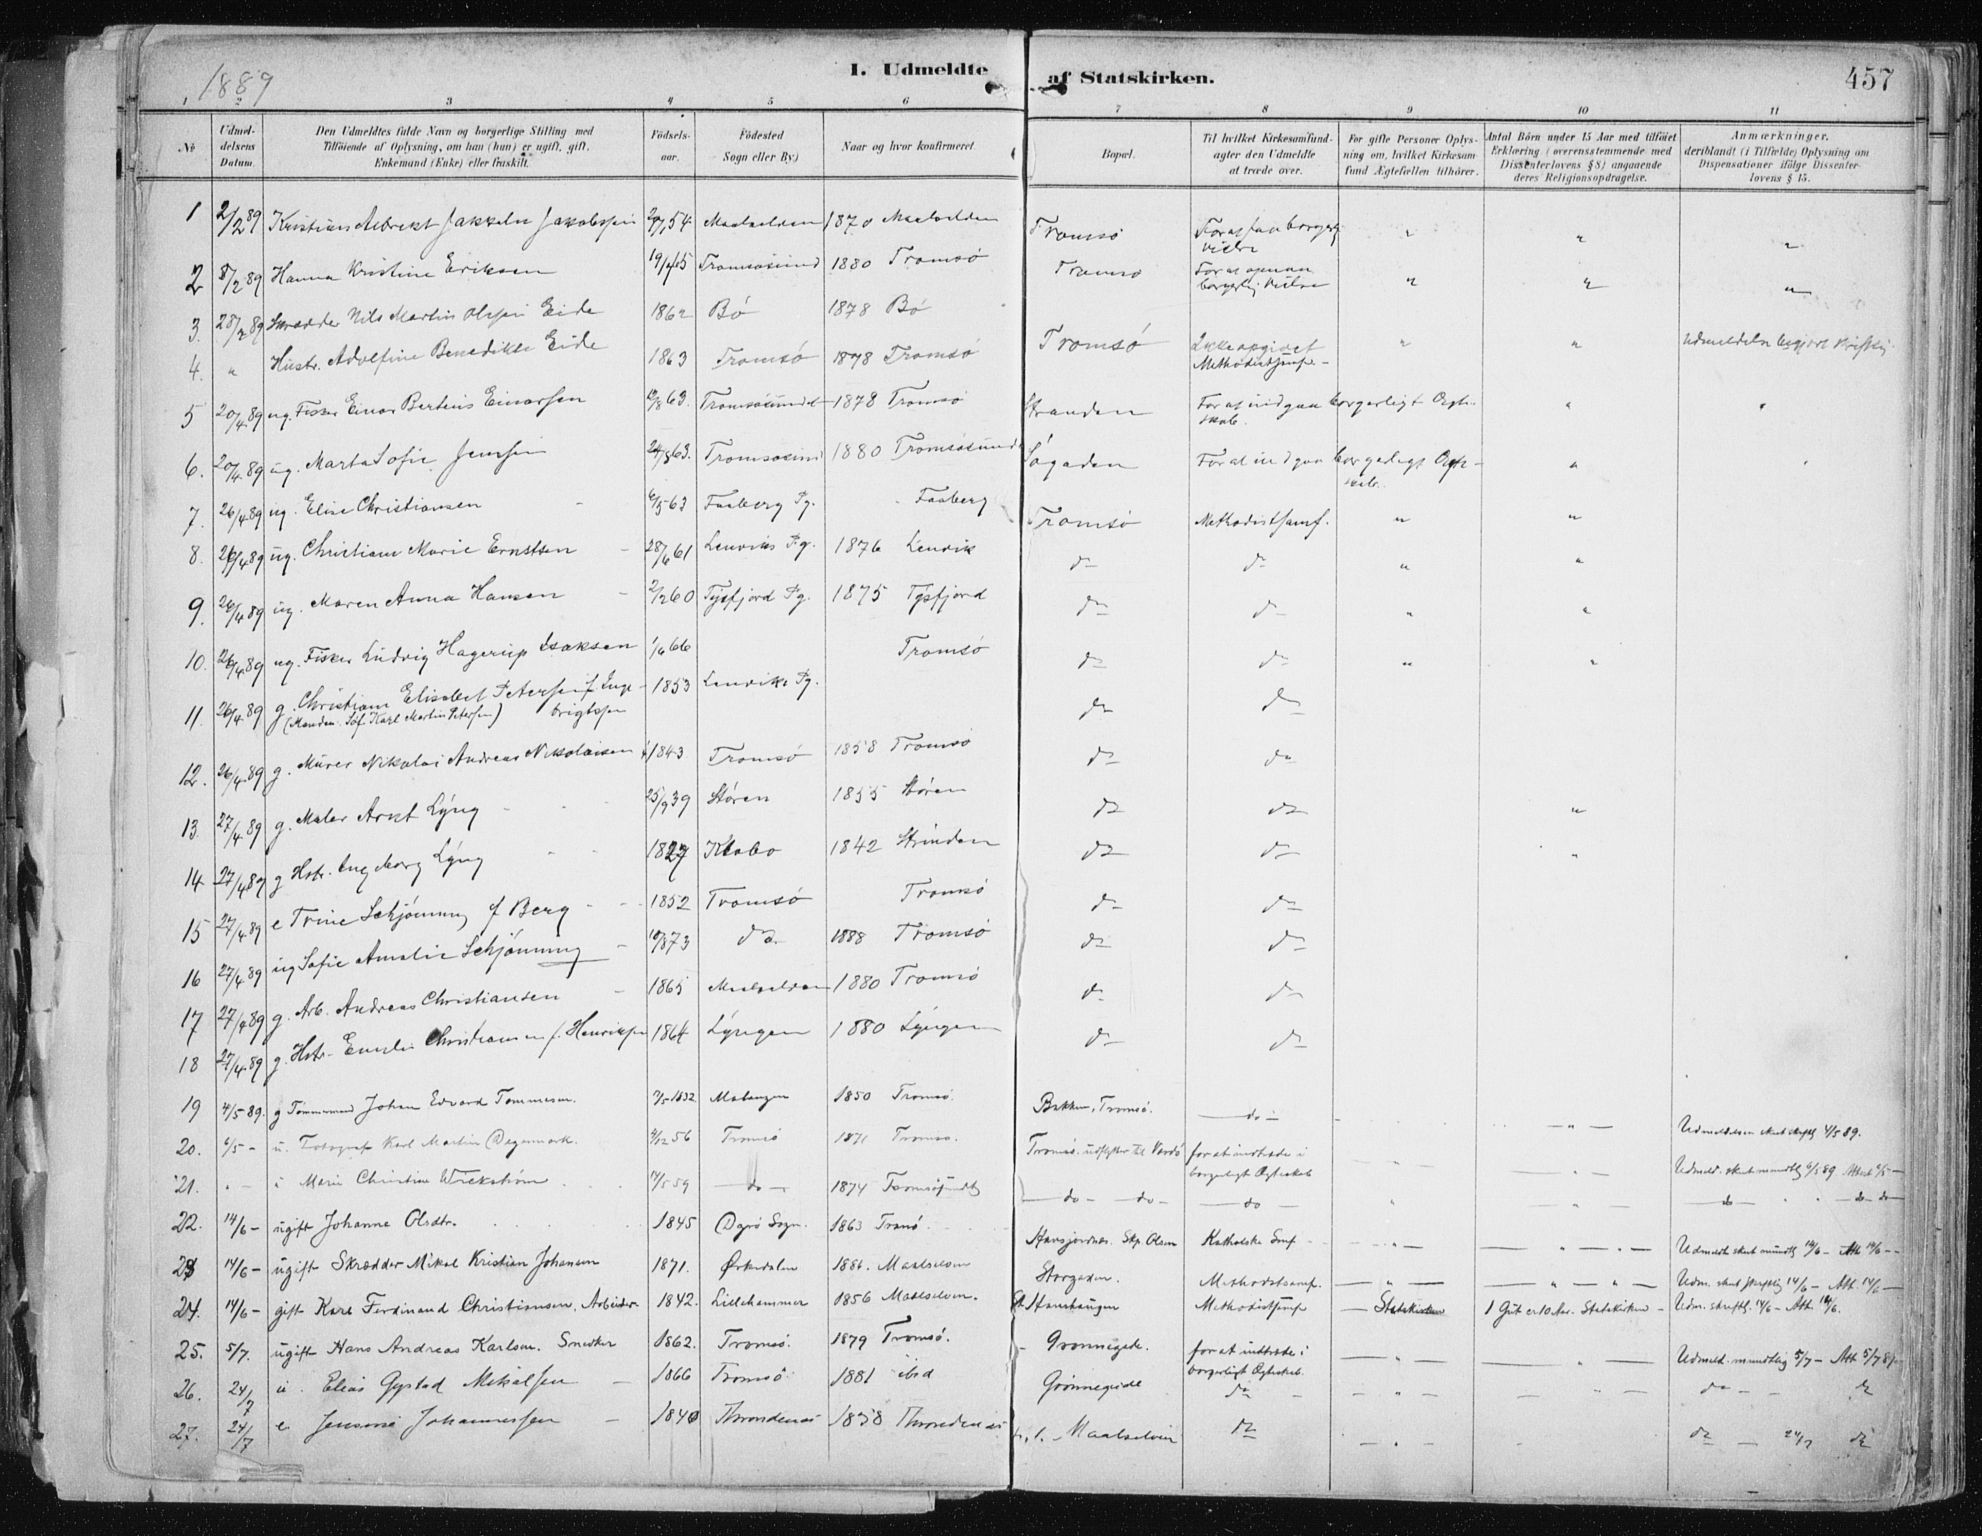 1889
I. Udmeldte af Statskirken.
457
1 2 3 4 5 6 7 8 9 10 11
No
Udmeldelsens Datum.
Den Udmeldtes fulde Navn og borgerlige Stilling med
Tilföiende af Oplysning, om han (hun) er ugift, gift,
Enkemand (Enke) eller fraskilt.
Födselsaar.
Födested
Sogn eller By)
Naar og hvor konfirmeret
Bopæl.
Til hvilket Kirkesamfund-
agter den Udmeldte
at træde over.
For gifte Personer Oplys-
ning om, hvilket Kirkesam-
fund Ægtefællen tilhörer.
Antal Börn under 15 Aar med tilföiet
Erklæring (overensstemmende med
Dissenterlovens § 8) angaaende
deres Religionsopdragelse.
Anmærkninger,
deriblandt (i Tilfælde) Oplysning om
Dispensationer ifölge Dissenter-
lovens § 15.
1 2/2 89 Kristian Albrekt Jakobsen 54 Maalselven 1870 Maalselven Tromsö
2 8/2 89 Hanna Kristine Eriksen Tromsösund 1880 Tromsö Tromsö borgerlig Vielse
3. 28/2 89 Skrædder Nils Martin Olsen Eide 1862 Bö 1878 Bö
4. " Hustr. Adolfine Benedikte Eide 1863 Tromsö 1878 Tromsö Tromsö Ikke opgivet Methodistsamf. " " Udmeldelse begjært skriftlig
5 20/4 89 ug. Fisker Einar Bertius Einarsen 63. Tromsösund 1878 Tromsö Stranden For at indgaa borgerligt Ægteskab. "
6. 20/4 89 ug. Marta Sofie Jensen 24/8 63. Tromsösund 1880 Tromsösund Sögaden For at indgaa borgerligt Ægteskab "
7. 26/4 89 ug. Elise Christiansen 6/5 63 Faaberg Pg. Faaberg Tromsö Methodistsamf. " "
8. 26/4 89 ug. Christiane Marie Ernstsen 28/6 61 Lenviks Pg. 1876 Lenvik do do " "
9. 26/4 89 ug. Maren Anna Hansen 2/12 60 Tysfjord Pg. 1875 Tysfjord do do " "
10. 26/4 89 ug. Fisker Ludvig Hagerup Isaksen 66 Tromsö do do " "
11. 26/4 89 g. Christiane Elisabet Petersen f. Engebrigtsen 1853 Lenviks Pg. do do
(Manden Söf. Karl Martin Petersen)
12. 26/4 89 g. Murer Nikolai Andreas Nikolaisen 1843 Tromsö 1858 Tromsö do do
13. 27/4 89 g. Maler Arnt Lyng 25/9 39 Stören 1855 Stören do do "
14 27/4 89 g Hstr. Ingeborg Lyng 1827 Klæbo 1842 Strinden do do "
15 27/4 89 e Trine Schjönning f Berg 1852 Tromsö Tromsö do do
16 27/4 89 ug Sofie Amalie Schjönning 73 do. 1888 Tromsö do do
17 27/4 89 g. Arb. Andreas Christiansen 1865 Maalselven 1880 Tromsö do do
18 27/4 89 g. Hstr. Emilie Christiansen f. Henriksen 1864 Lyngen 1880 Lyngen do do
19 4/5 89. g Tömmermand Johan Edvard Tommesen. 1832 Malangen 1850 Tromsö. Bakken, Tromsö. do " Udmeldelsen sket skriftl 4/5 89.
20. 6/5 - u. Fotograf Karl Martin Degermark. 4/12 56 Tromsö 1871 Tromsö. Tromsö. udflytter til Vardö for at indtræde i borgerligt Ægteskab " Udmeld. sket mundtlig 6/5 89 Attest 6/5
21. " Marie Christine Wickström 14/5 59 do 1874 Tromsösundet do do do " do do
22. 14/6 - ugift Johanne Olsdtr. 1845 Dyrö Sogn. 1863 Tranö. Skp. Olsen Katholske Smf " Udmeldt sket mundtl 14/6 - Att 14/6 -
23 14/6 - ugift Skrædder Mikal Kristian Johansen 1871. Örkedalen 1886. Maalselven Storgaden. Methodistsamf. " " Udm. sket skriftlig 14/6 - Att. 14/6 -
24. 14/6 - gift Karl Ferdinand Christiansen, Arbeider 1842. Lillehammer 1856 Maalselven. Hansehaugen Methodistsamf Statskirken 1 Gut er 10 Aar. Statskirken - Udm. skriftl. 14/6 - Att 14/6.
25. 5/7. ugift Hans Andreas Karlsen. Snedker 1862. Tromsö. 1879 Tromsö. Grönnegade. for at indtræde i borgerligt Ægteskab. " " Udmeld. mundtlig 5/7 - Att 5/7 89
26. 24/7 u. Elias Gystad Mikalsen 1866 Tromsö 1881 ibid Grönnegade do " " do do
27. 24/7 e Johannessen 1840 Throndenæs 1858 Throndenæs Maalselven do " do 24/7 do